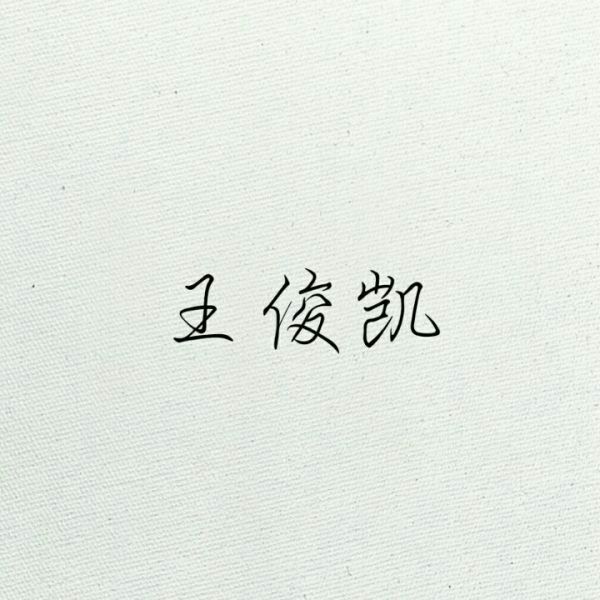 王俊凯